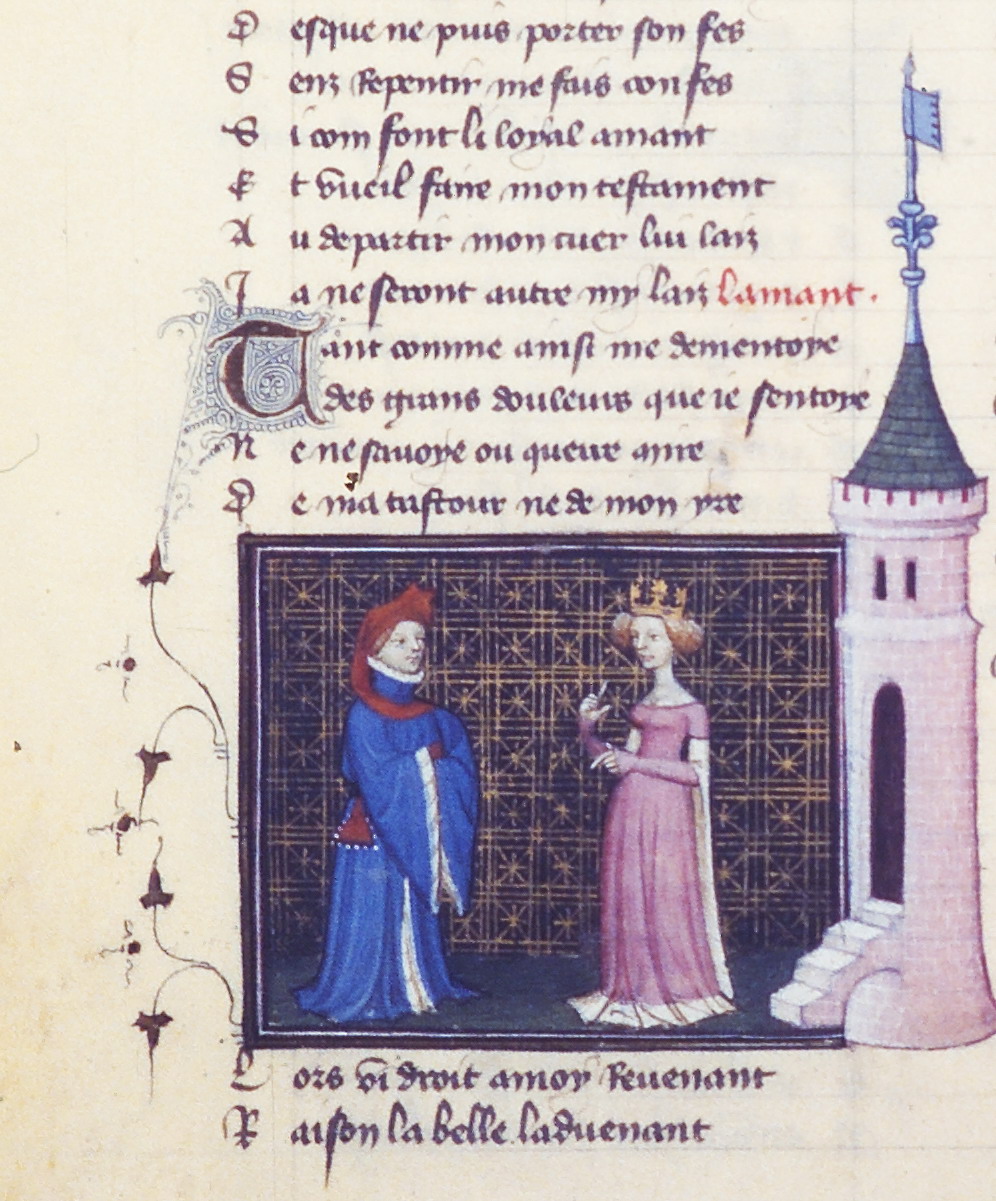 D esque ne puis porter son fes
S enz Repentir me fais confes
S i com font li loyal amant
E t vueil faire mon testament
A u departir mon cuer lui laiz
J a ne seront autre my laiz lamant.
Tant comme ainsi me dementoye
des grans douleurs que ie sentoye
N e ne sauoye ou querre mire
D e ma tristour ne de mon yre
L ors vi droit a moy Reuenant
R aison la belle laduenant